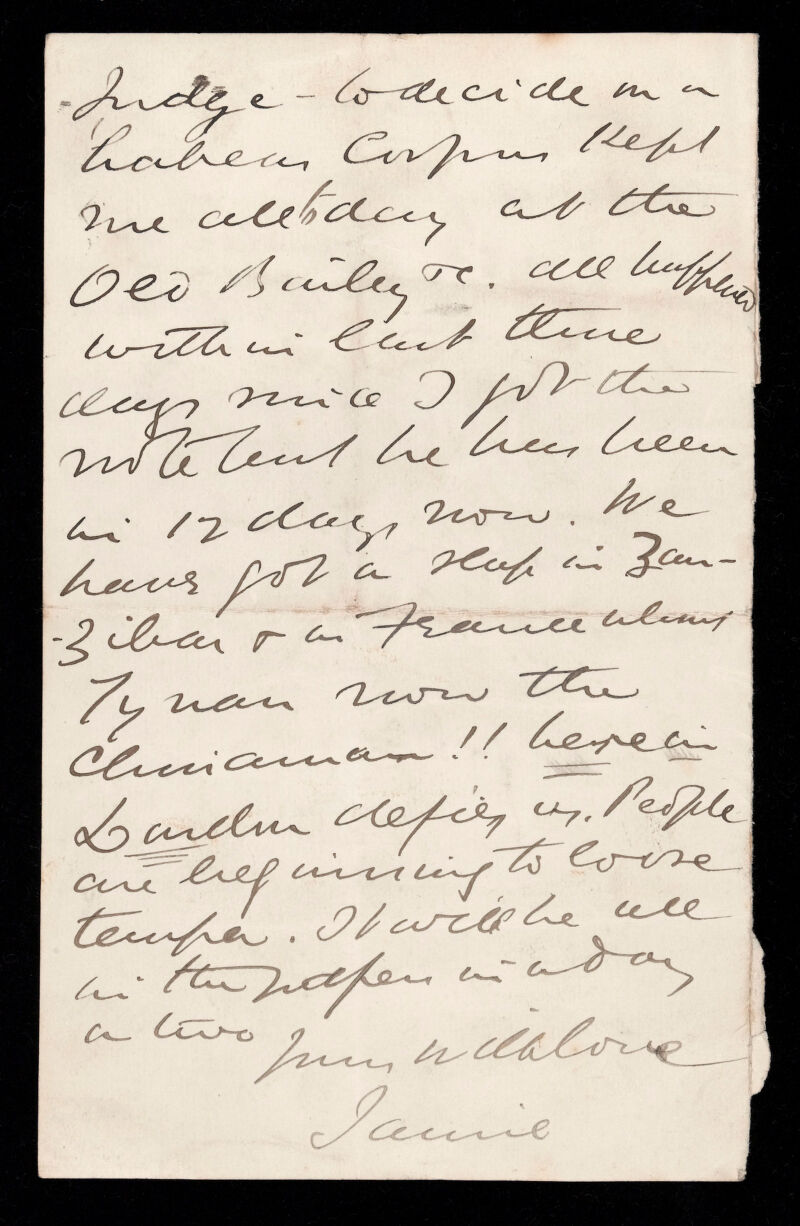 Judge - to decide on a
habeas Corpus Kept
me all to day at the
Old Bailey &c. all happened
within last three
days since I got the
note but he has been
in 12 days now. We
have got a slap in Zan-
-zibar & in France about
Tynan now the
Chinaman!! here in
London defies us. People
are beginning to loose
temper. It will be all
in the papers in a day
or two
Yours with love
Jamie